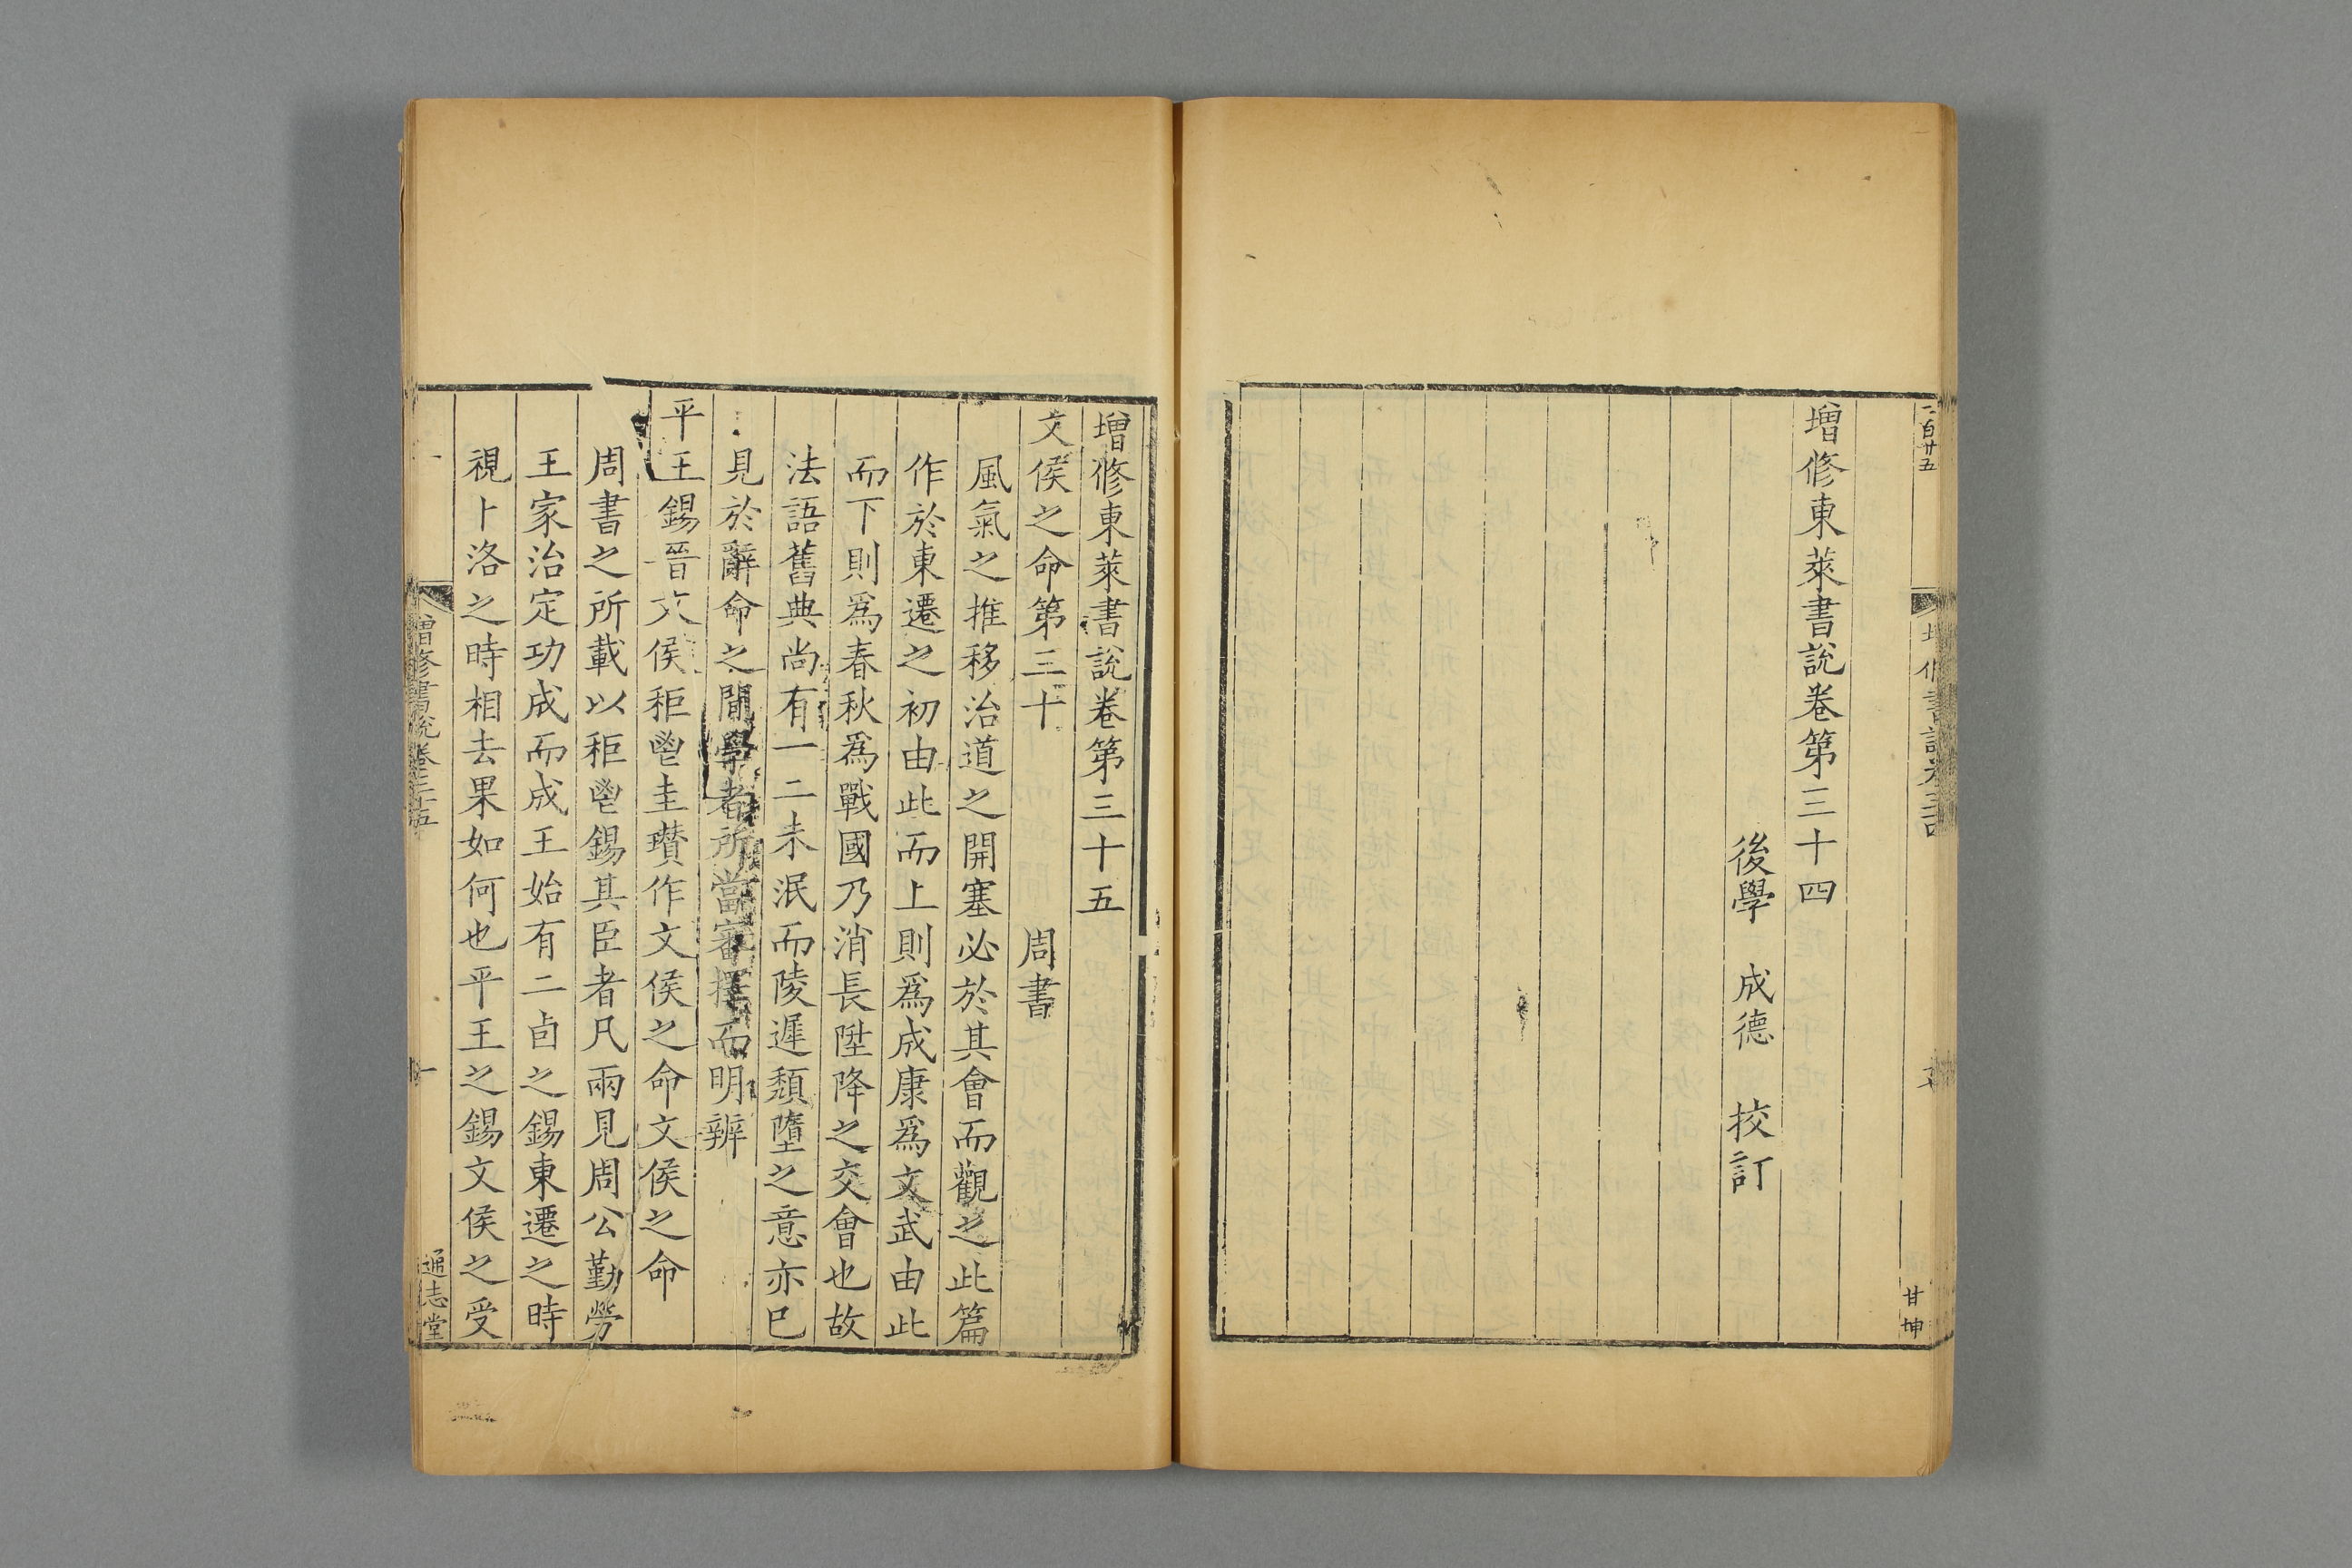 二百廿五
增修書說卷三十四
甘坤
增修東萊書說卷第三十四
後學 成德 挍訂
增修東萊書說卷第三十五
文侯之命第三十 周書
風氣之推移治道之開塞必於其會而觀之此篇
作於東遷之初由此而上則爲成康爲文武由此
而下則爲春秋爲戰國乃消長陞降之交會也故
法語舊典尚有一二未泯而陵遲頹墮之意亦已
見於辭命之閒學者所當審擇而明辨
平王錫晉文侯秬鬯圭瓚作文侯之命文侯之命
周書之所載以秬鬯錫其臣者凡兩見周公勤勞
王家治定功成而成王始有二卣之錫東遷之時
視卜洛之時相去果如何也平王之錫文侯之受
增修書說卷三十五
一
通志堂